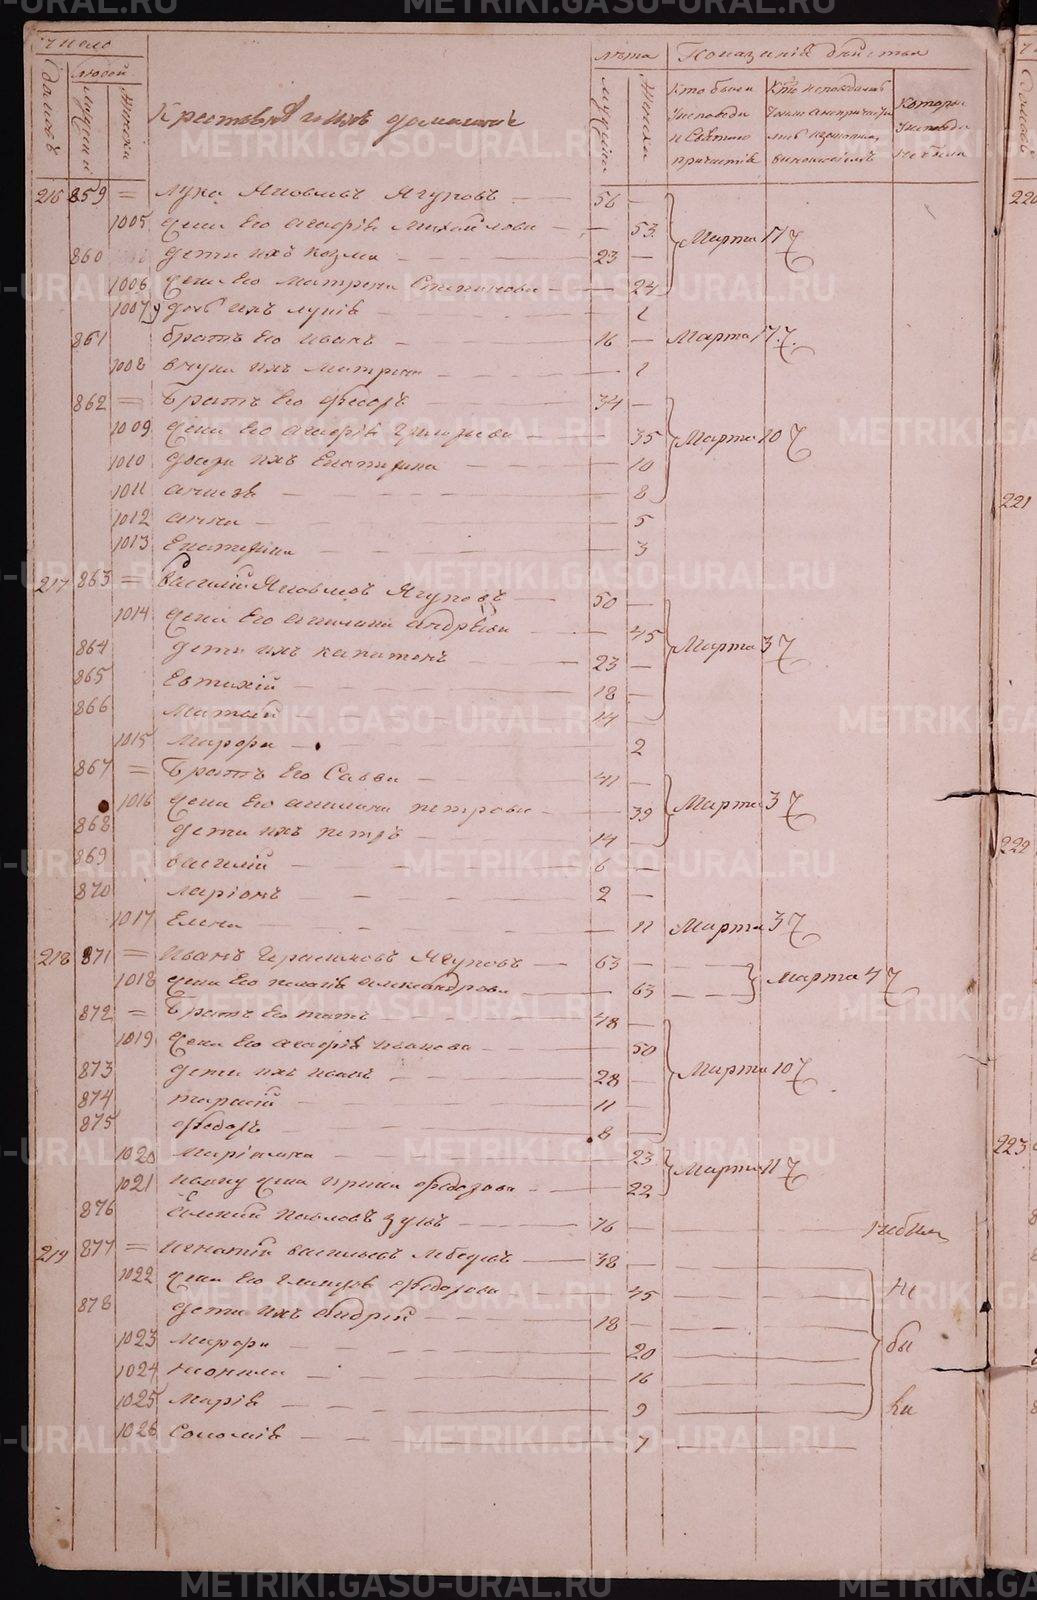 Число лѣта Показаніе бытья
домовъ людей мужески женски Крестьяне и ихъ домашніе мужска женска
Кто были у исповѣди и Святаго причастія
Кто исповѣдались
Которые у исповѣди не были
216 859 = Лука Яковлевъ Ягуповъ — 56 —
1005 жена Его Агафія Михайлова — — 53
Марта 17
860 дети ихъ козма — 23 —
1006 жена Его Матрена Степанова — — 24
1007 дочь ихъ — 1
861 братъ Его Иванъ — 16 — Марта 17
1008 внука ихъ Матрена — 1
862 = Братъ Его Федоръ — 34 —
1009 жена Его Агафія Григорьева — — 35
Марта 10
1010 дочери ихъ Екатерина — 10
1011 — 8
1012 анна — 5
1013 Екатерина — 3
217 863 = Василий Яковлевъ Ягуповъ — 50 —
1014 жена Его акилина андрѣева — — 45
Марта 3
864 дети ихъ капитонъ — 23 —
865 Евтихій — 18 —
866 Матвей — 14 —
1015 Марфа — 2
867 = Братъ Его Савва — 41 —
1016 жена Его акилина петрова — — 39
Марта 3
868 дети ихъ петръ — 14 —
869 василій — 6 —
870 ларіонъ — 2 —
1017 Елена — 11 Марта 3
218 871 = Иванъ Герасимовъ Ягуповъ — 63 —
1018 жена Его пелагія александрова — 63
Марта 4
872 = Братъ Его — 48 —
1019 жена Его Агафія иванова — — 50
Марта 10
873 дети ихъ — 28 —
874 тарасій — 11 —
875 Федоръ — 8 —
1020 Маріамна — 23
Марта 11
1021 жена ирина — 22
876 павловъ — 76 — не были
219 877 = Игнатій васильевъ лебедевъ — 38 —
1022 жена Его Федорова — 45
не
878 дети ихъ Андрій — 18 —
1023 Марфа — 20
бы
1024 неонила — 16
1025 Марія — 9
ли
1026 Соломія — 7
220
221
222
223
METRIKI.GASO-URAL.RU